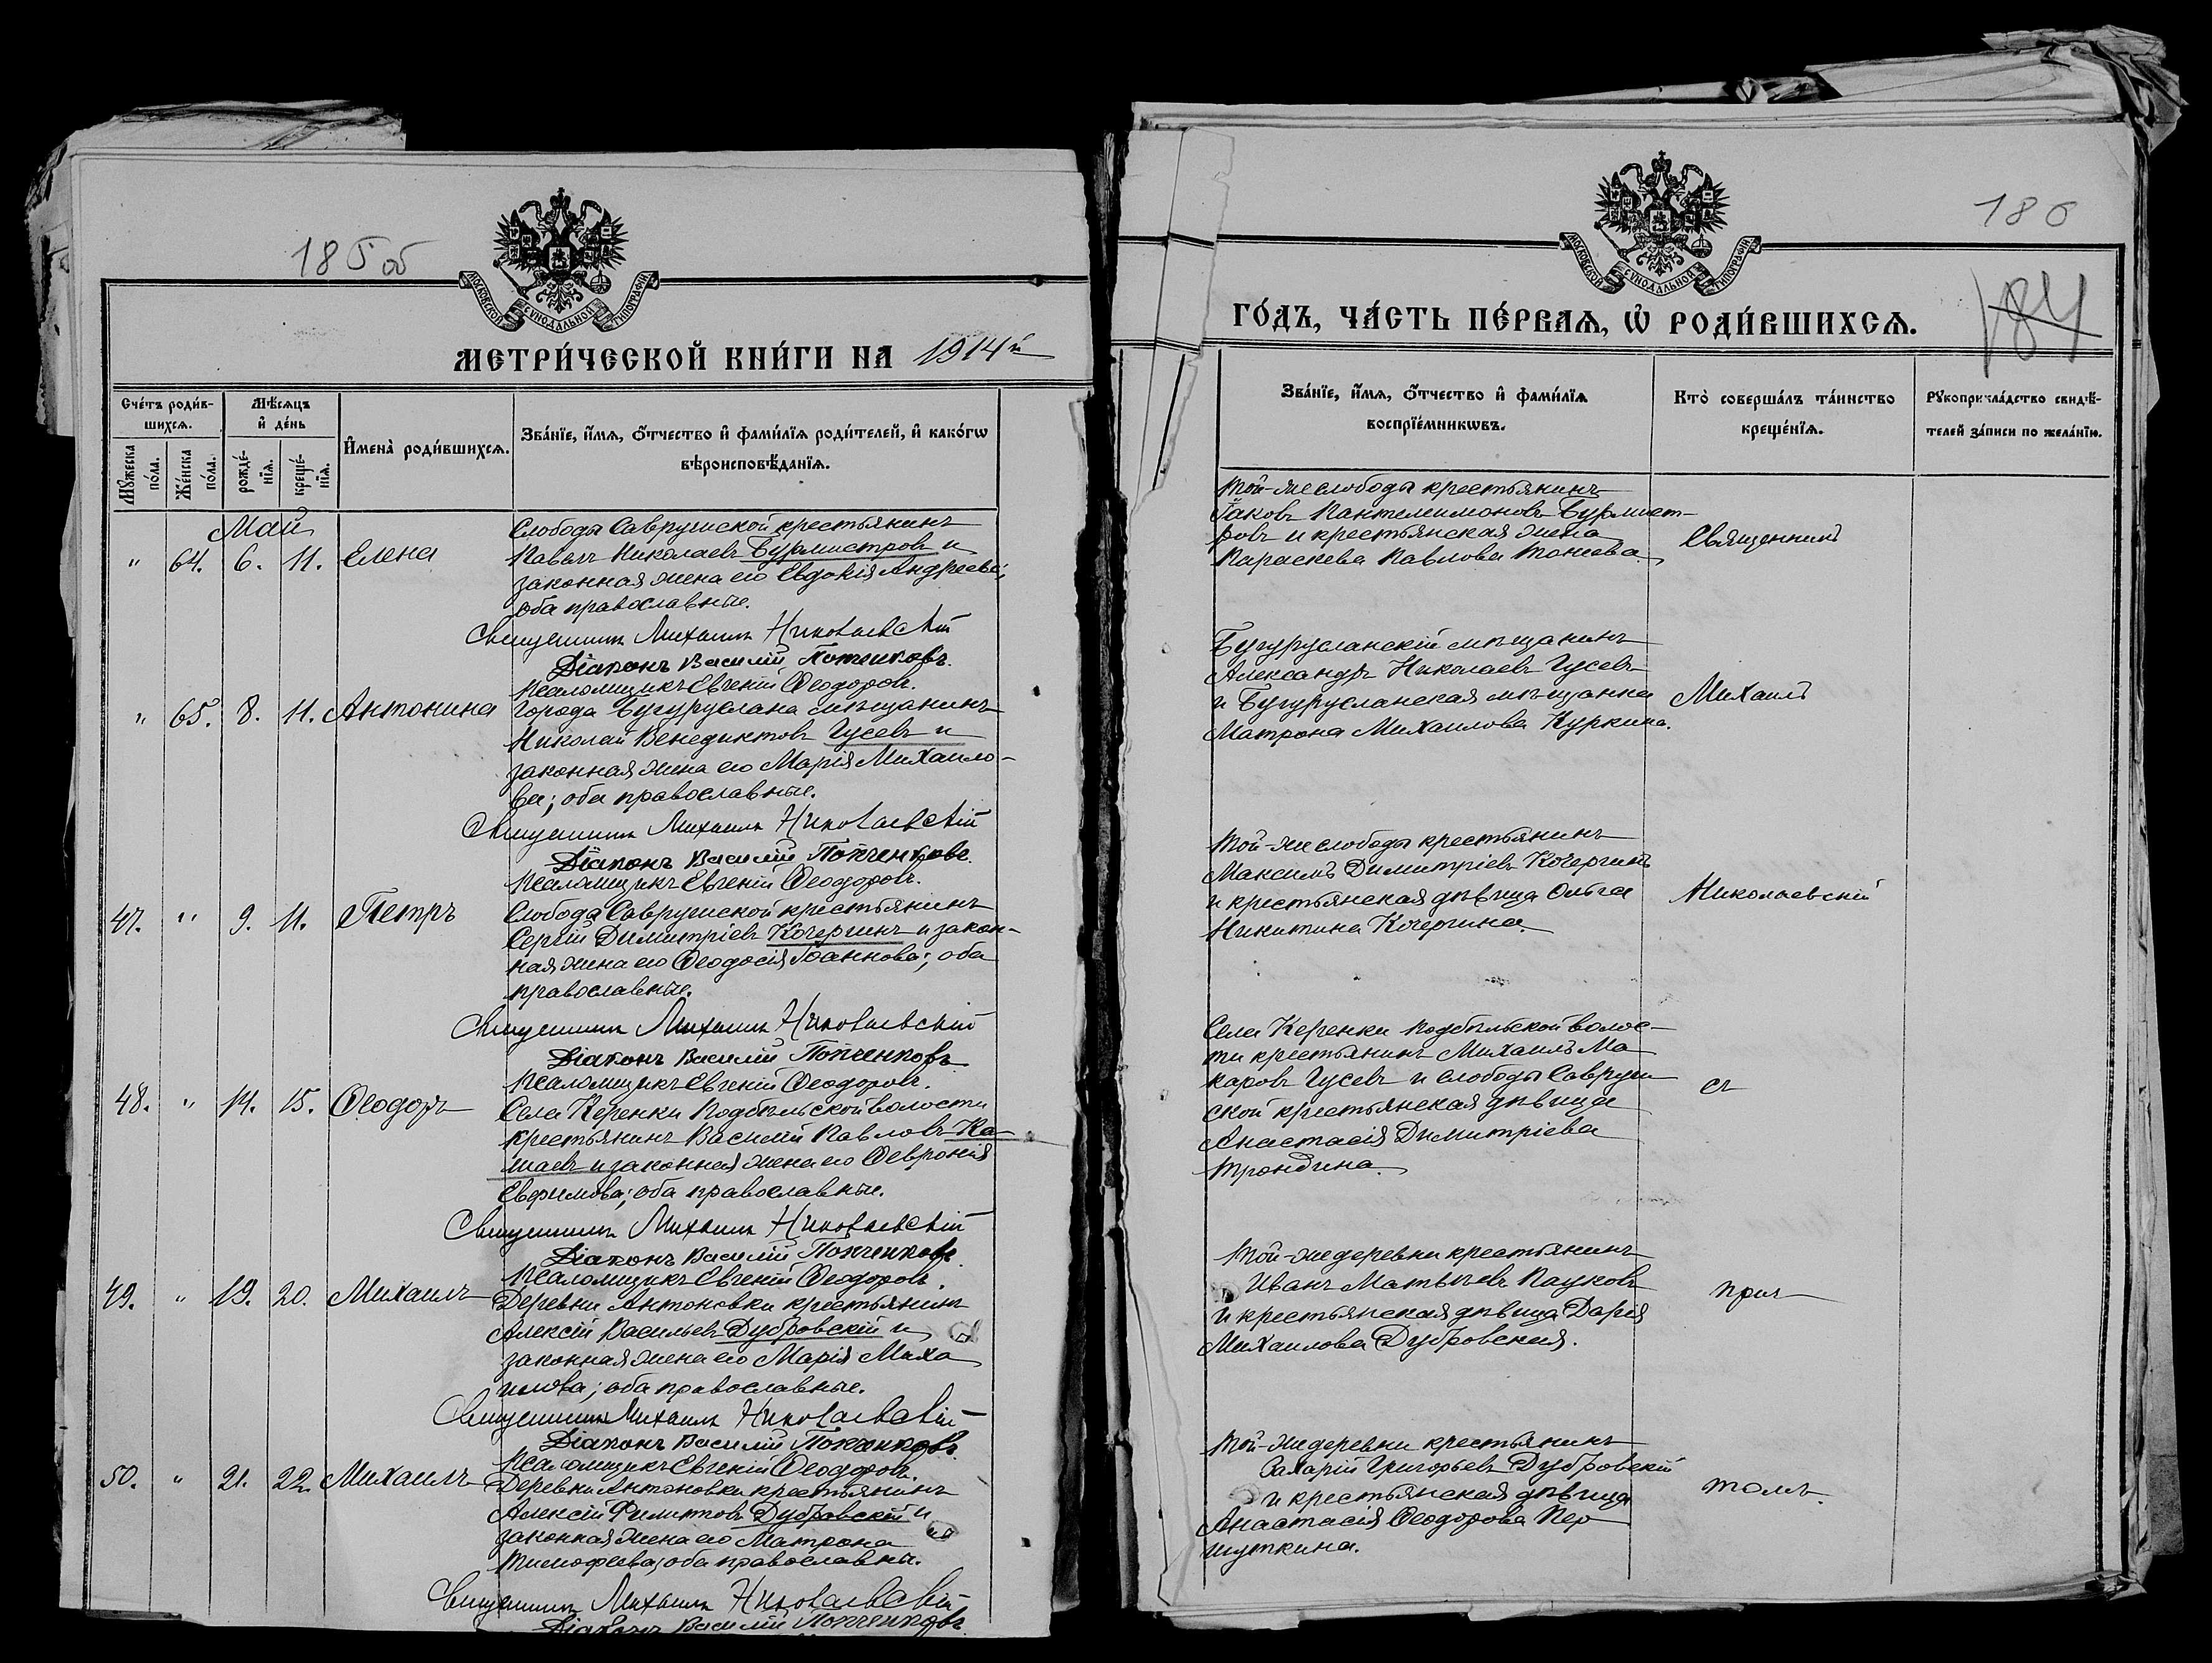 185 об
МОСКОВСКОЙ СѴНОДАЛЬНОЙ ТИПОГРАФІИ
МЕТРИ́ЧЕСКОЙ КНИ́ГИ НА 1914й
Сче́тъ роди́в-
шихсѧ.
Мѣ́сѧцъ
и҆ де́нь
И҆мена̀ роди́вшихсѧ.
Зва́нїе, и҆́мѧ, ѻ҆́тчество и҆ фами́лїѧ роди́телей, и҆ како́гѡ
вѣроисповѣ́данїѧ.
Мꙋ́жеска
по́ла.
Же́нска
по́ла.
рожде́-
нїѧ.
креще́-
нїѧ.
Май
" 64. 6. 11. Елена
Слободы Саврушской крестьянинъ
Павелъ Николаевъ Бурмистровъ и
законная жена его Евдокія Андреева;
оба православные.
Священникъ Михаилъ Николаевскій
Діаконъ Василій Попченковъ.
Псаломщикъ Евгеній Ѳеодоровъ.
" 65. 8. 11. Антонина
Города Бугуруслана мѣщанинъ
Николай Венедиктовъ Гусевъ и
законная жена его Марія Михаило-
ва; оба православные.
Священникъ Михаилъ Николаевскій
Діаконъ Василій Попченковъ.
Псаломщикъ Евгеній Ѳеодоровъ.
47. " 9. 11. Петръ
Слободы Саврушской крестьянинъ
Сергій Димитріевъ Кочергинъ и закон-
ная жена его Ѳеодосія Іоаннова; оба
православные.
Священникъ Михаилъ Николаевскій
Діаконъ Василій Попченковъ
Псаломщикъ Евгеній Ѳеодоровъ.
48. " 14. 15. Ѳеодоръ
Села Керенки Подбѣльской волости
крестьянинъ Василій Павловъ Ка-
шаевъ и законная жена его Ѳевронія
Евфимова; оба православные.
Священникъ Михаилъ Николаевскій
Діаконъ Василій Попченковъ
Псаломщикъ Евгеній Ѳеодоровъ.
49. " 19. 20. Михаилъ
Деревни Антоновки крестьянинъ
Алексій Васильевъ Дубровскій и
законная жена его Марія Миха
илова; оба православные.
Священникъ Михаилъ Николаевскій
Діаконъ Василій Попченковъ
Псаломщикъ Евгеній Ѳеодоровъ.
50. " 21. 22. Михаилъ
Деревни Антоновки крестьянинъ
Алексій Филиповъ Дубровскій и
законная жена его Матрона
Тимофеева; оба православны.
Священникъ Михаилъ Николаевскій
Діаконъ Василій Попченковъ
186
184
МОСКОВСКОЙ СѴНОДАЛЬНОЙ ТИПОГРАФІИ
ГО́ДЪ, ЧА́СТЬ ПЕ́РВАѦ, Ѡ҆ РОДИ́ВШИХСѦ.
Зва́нїе, и҆́мѧ, ѻ҆́тчество и҆ фами́лїѧ
воспрїе́мникѡвъ.
Кто̀ соверша́лъ та́инство
креще́нїѧ.
Рꙋкоприкла́дство свидѣ́-
телей за́писи по жела́нїю.
Той-же слободы крестьянинъ
Іаковъ Пантелеимоновъ Бурмист-
ровъ и крестьянская жена
Параскева Павлова
Священникъ
Бугурусланскій мѣщанинъ
Александръ Николаевъ Гусевъ
и Бугурусланская мѣщанка
Матрона Михаилова Куркина.
Михаилъ
Той-же слободы крестьянинъ
Максимъ Димитріевъ Кочергинъ
и крестьянская дѣвица Ольга
Никитина Кочергина.
Николаевскій
Села Керенки Подбѣльской волос-
ти крестьянинъ Михаилъ Ма
каровъ Гусевъ и слободы Савруш
ской крестьянская дѣвица
Анастасія Димитріева
Трондина.
съ
Той-же деревни крестьянинъ
Иванъ Матвѣевъ Пауковъ
и крестьянская дѣвица Дарія
Михаилова Дубровская.
прич
Той-же деревни крестьянинъ
Захарій Григорьевъ Дубровскій
и крестьянская дѣвица
Анастасія Ѳеодорова Пер
шуткина.
томъ.